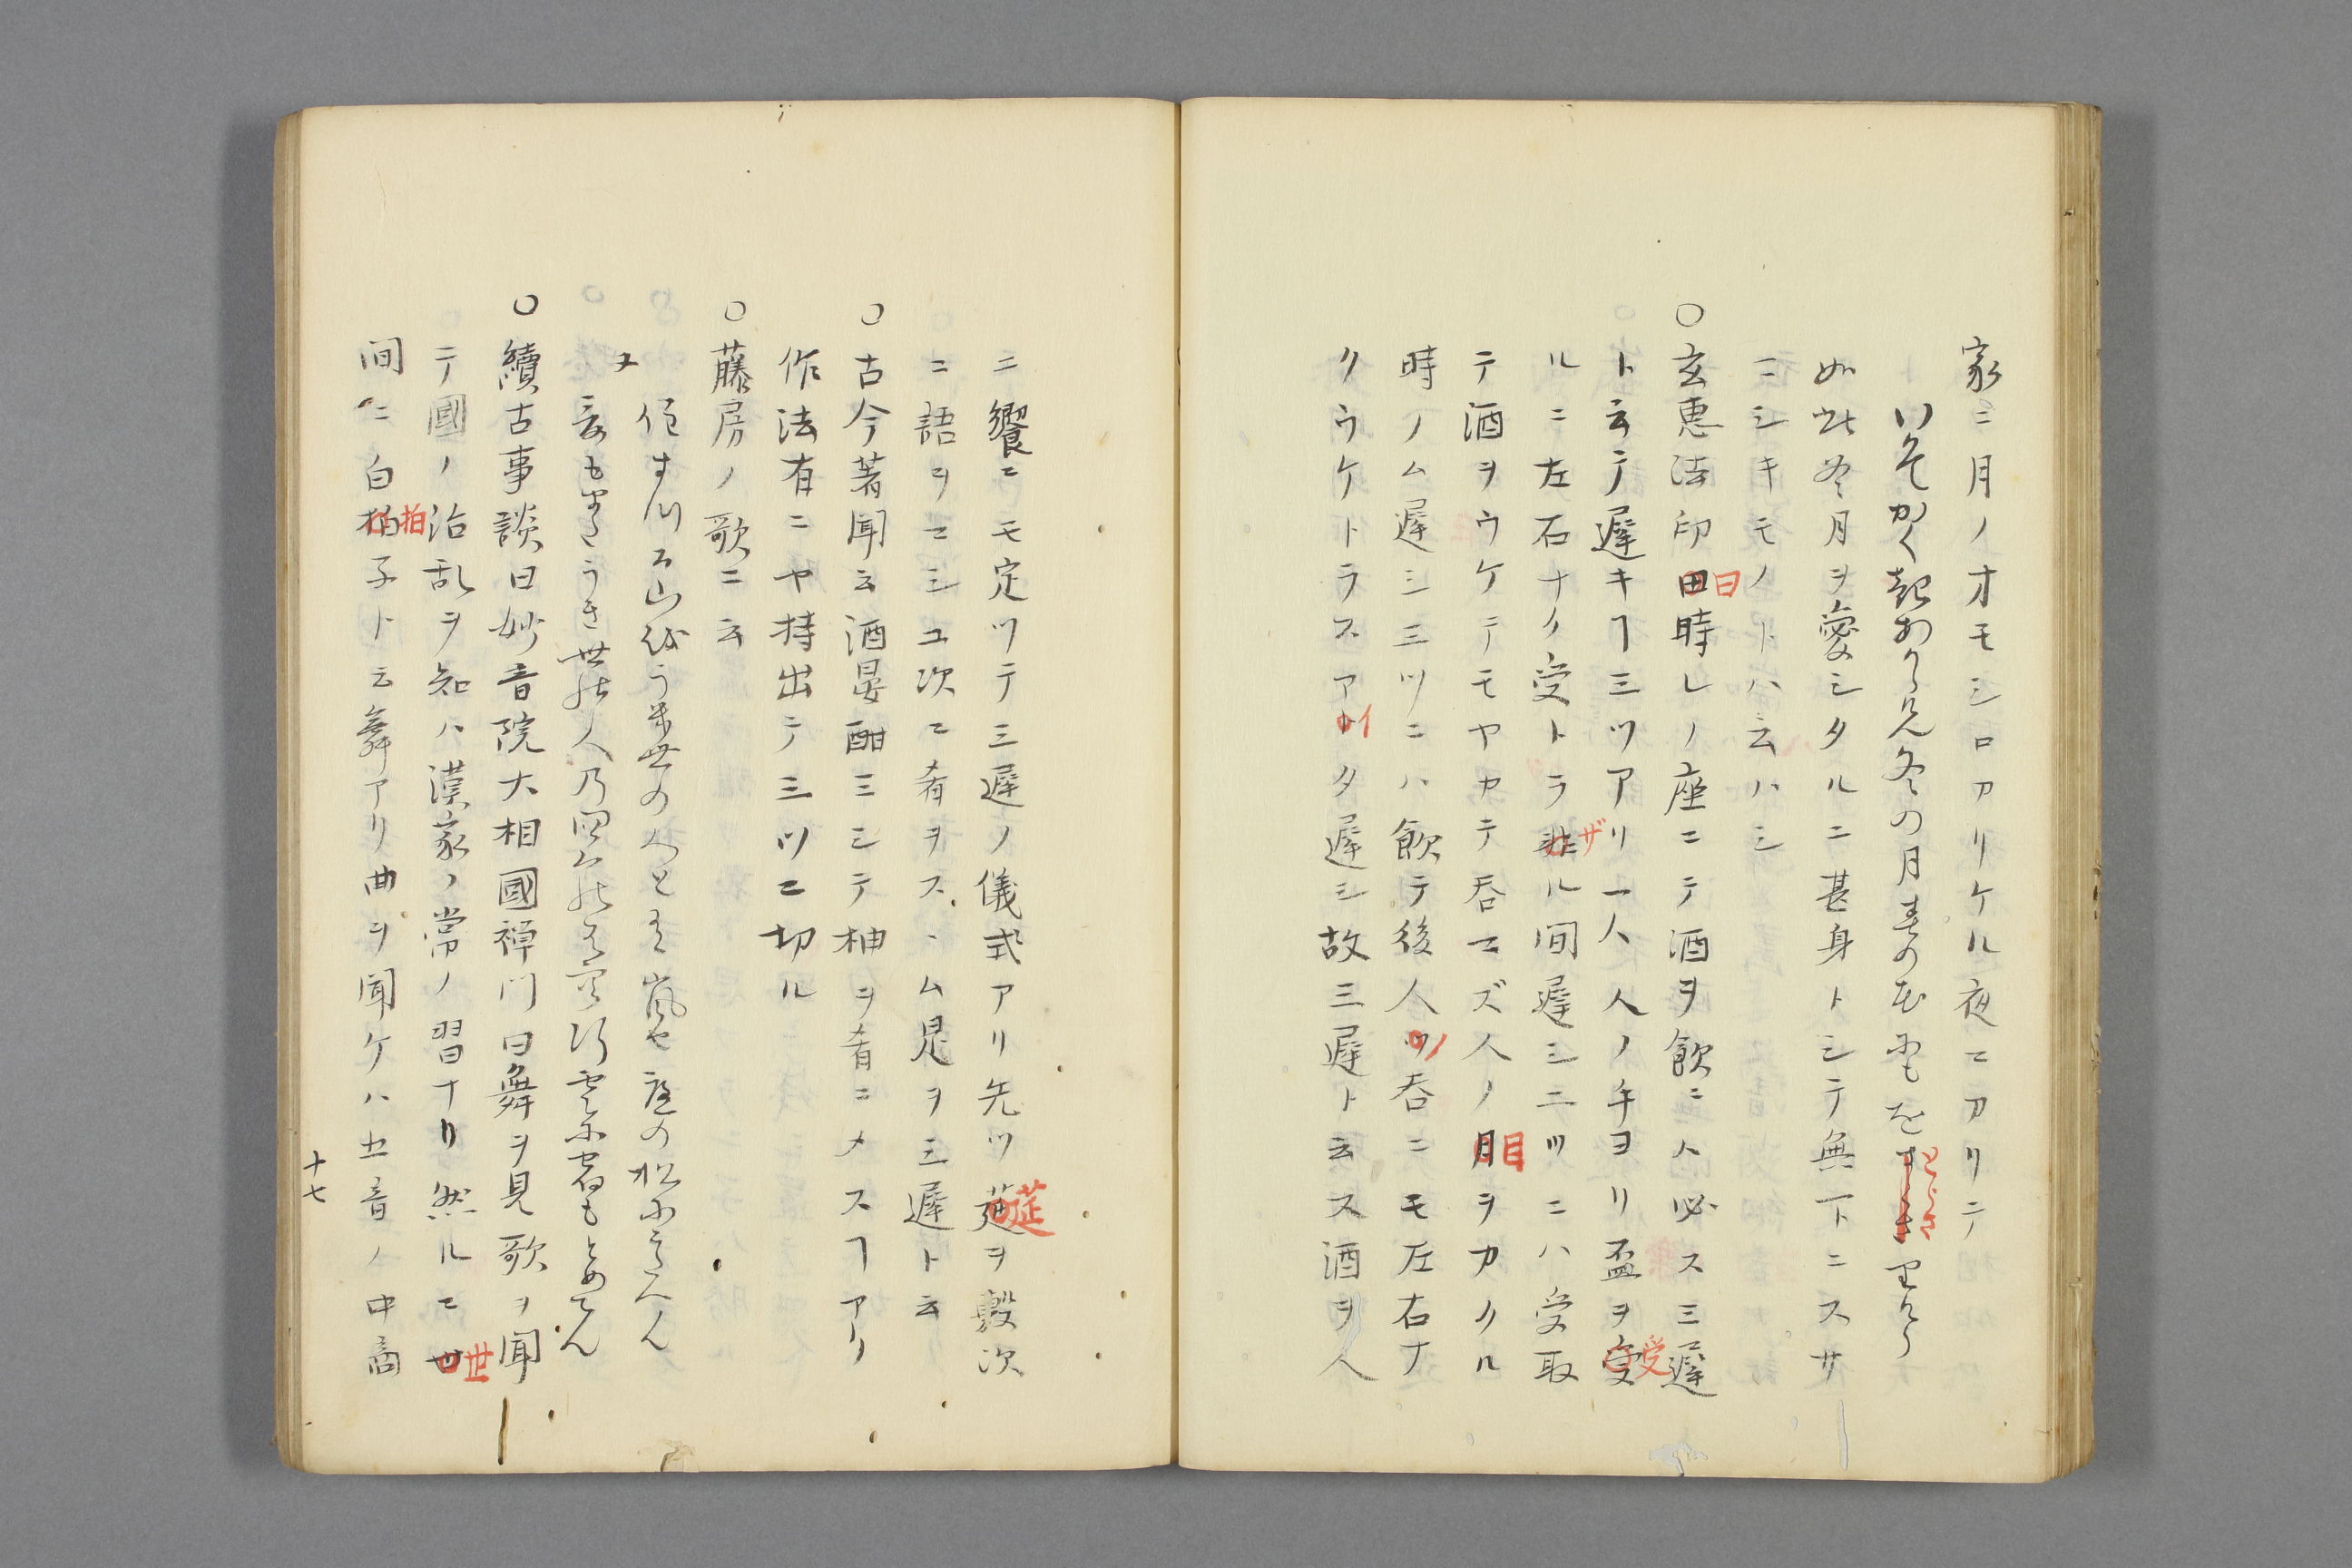 家ニ月ノオモシロカリケル夜ニカリニテ
いそかく起わかれ冬の月春の花にもをとらさりけり
如此冬月ヲ愛シタルニ甚身トシテ無下ニスサ
ニシキモノトハ云ハシ
○玄恵法印田曰時レノ座ニテ酒ヲ飲ニハ必ス三遲
ト云テ遲キヿ三ツアリ一人人ノ手ヨリ盃ヲ受受
ルニ左右ナク受トラ非ザル間遲シ二ツニハ受取
テ酒ヲウケテモヤカテ呑ニズ人ノ月目ヲカクル
時ノム遲シ三ツニハ飲テ後人ツノ呑ニモ左右ナ
クウケトラスアイタ遲シ故三遲ト云ス酒ヲ人
ニ饗ニモ定ツテ三遲ノ儀式アリ先ツ莚ヲ敷次
ニ語ヲニシユ次ニ肴ヲスヽム是ヲ三遲ト云
○古今著聞云酒宴酣ミシテ柚ヲ肴ニメスヿアリ
作法有ニヤ持出テ三ツニ切ル
○藤房ノ歌ニ云
住すつる山をうき世の人とはゝ嵐や庭の松にこたへん
又
○續古事談曰妙音院大相國禅門曰舞ヲ見歌ヲ聞
テ國ノ治乱ヲ知ハ漢家ノ常ノ習ナリ然ルニ世世
間ニ白拍拍子ト云舞アリ曲ヲ聞ケハ五音ノ中商
十七